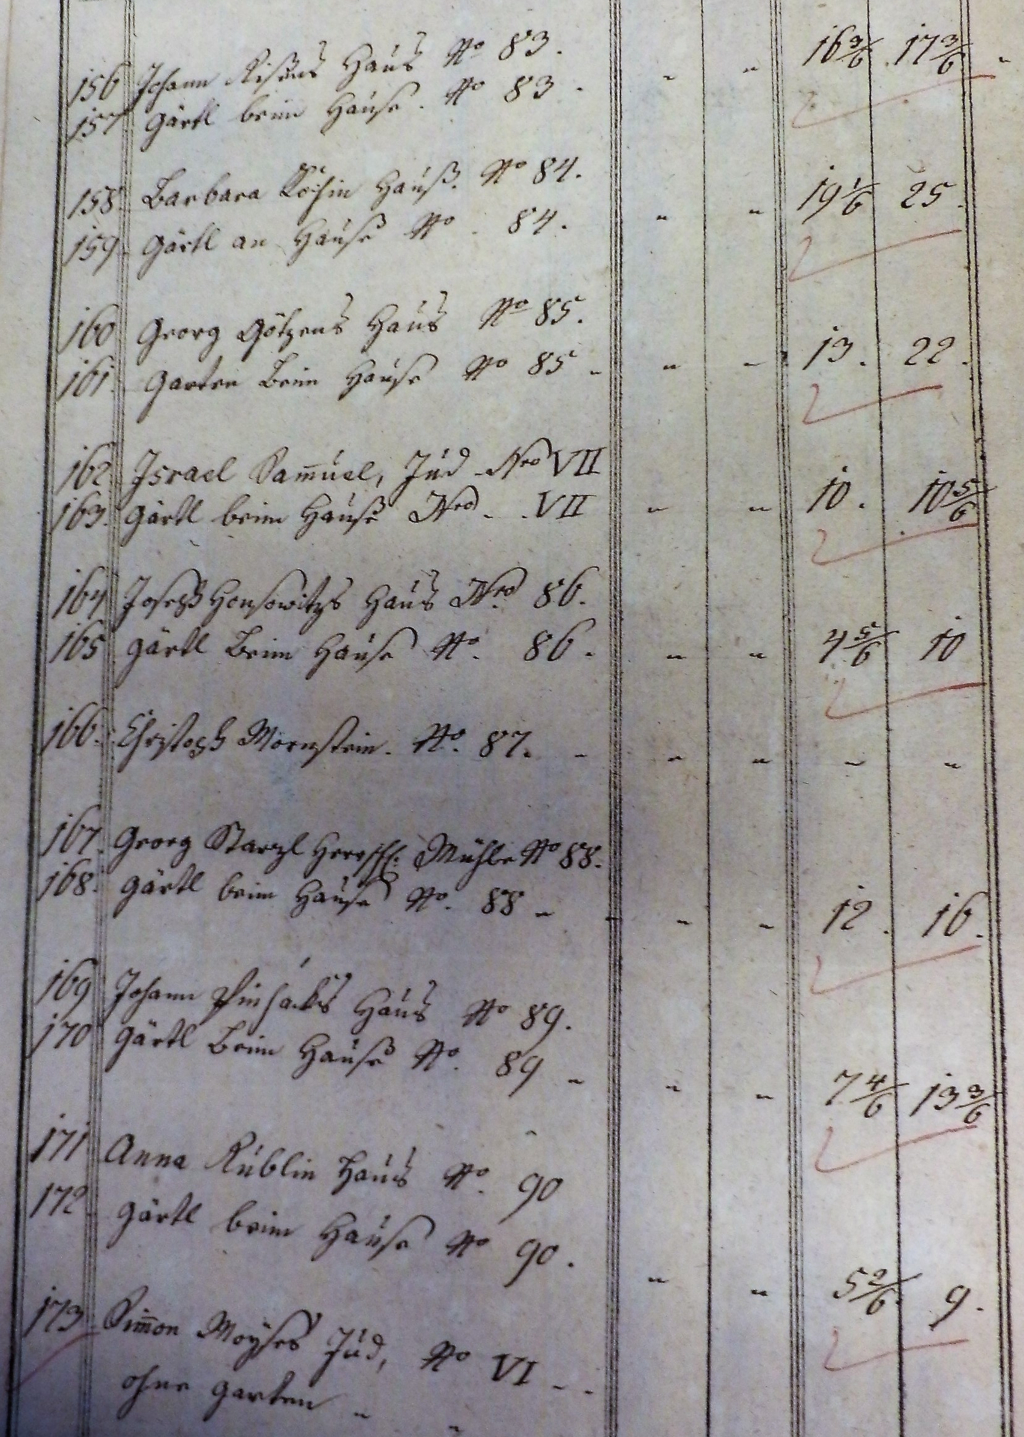 156 Johann Rißens Haus No 83.
157 Gärtl beim Hause. No 83 - " " 16 3/6 17 3/6
158 Barbara Köhin Hauß. No 84.
159 Gärtl an Hause No. 84. " " 19 1/6 25.
160 Georg Götzens Haus No 85.
161 Garten beim Hause No 85 - " " 13. 22.
162 Israel Sam̄uel, Jud Nro VII
163. Gärtl beim Hause Nro - VII " " 10. 10 5/6
164 Joseph Honsowitzs Haus Nro 86.
165 Gärtl beim Hause No. 86. " " 4 5/6 10
166. Christoph Mornstein. No. 87. - " " " "
167. Georg Starzl Herrschf: Mühle No 88.
168. Gärtl beim Hause No. 88 - " " 12. 16.
169 Johann Haus No 89.
170 Gärtl beim Hause No. 89 - " " 7 4/6 13 3/6
171 Anna Rüblin Haus No. 90
172 Gärtl beim Hause No 90. " " 5 2/6 9.
173 Sim̄on Moÿses Jud, No VI - -
ohne Garten - "